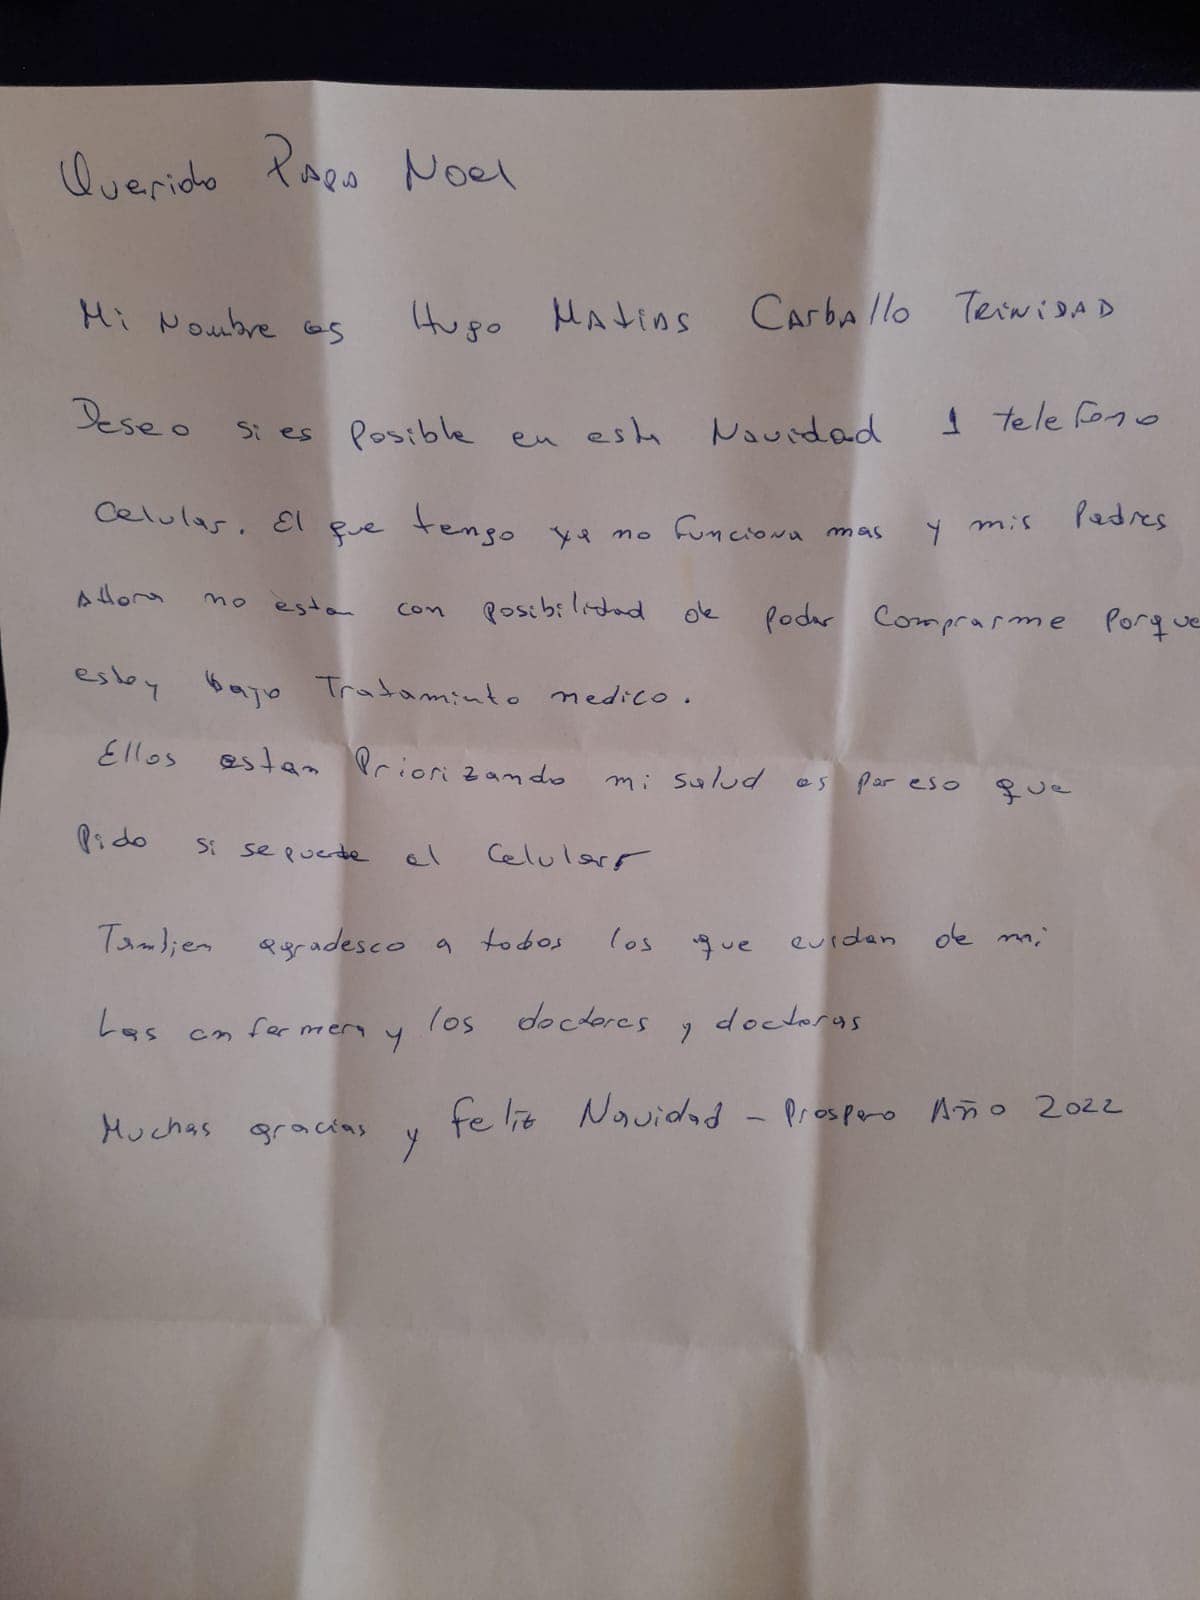 Querido Papa Noel
Mi Nombre es Hugo Matias Carballo TRINIDAD
Deseo si es Posible en esta Navidad 1 telefono
Celular. El que tengo ya no funciona mas y mis Padres
Ahora no estan con posibilidad de poder Comprarme Porque
estoy bajo Tratamiento medico.
Ellos estan Priorizando mi salud es por eso que
Pido si se puede el Celular
Tambien agradesco a todos los que cuidan de mi
Las enfermera y los doctores y doctoras
Muchas gracias y feliz Navidad - Prospero Año 2022